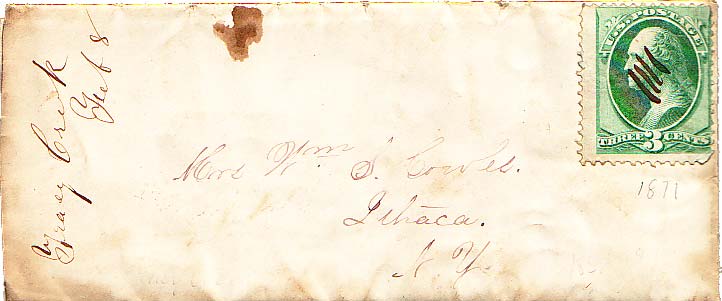 Tracy Creek
Feb 8
U.S. POSTAGE
THREE 3 CENTS
1871
Mrs Wm S. Cowles.
Ithaca.
N. Y.